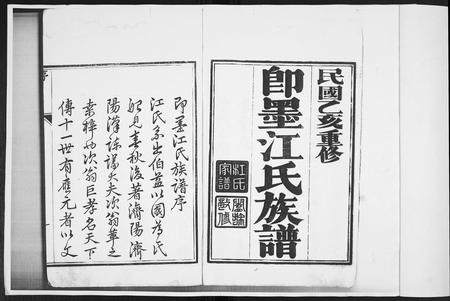 民國乙亥重修
即墨江氏族譜
江氏
家譜
敬修
即墨江氏族譜序
江氏系出伯益以國為氏
始見春秋後著濟陽濟
陽漢諫議大夫次翁革之
素稱次翁巨孝名天下
傳十一世有應元者以文
序